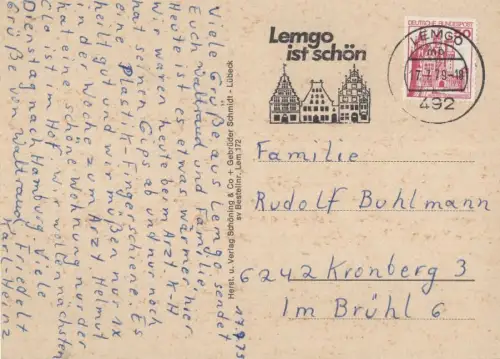 Viele Grüße aus Lemgo sendet
Euch Waltraud und Familie.
Heute ist es etwas wärmer hier
Wir waren heute beim Arzt. K-H
hat seinen Gips ab und nur noch
eine Plastik-Fingerschiene. Es
heilt gut und wir müßen nur 1x
in der Woche zum Arzt. Helmut
hat eine schöne Wohnung nur der
Clo ist im Hof. Wir wollen nächsten
Dienstag nach Hamburg. Viele
Grüße von Waltraud, Friedel +
Karl-Heinz
17.9.79
Herst. u. Verlag Schöning & Co + Gebrüder Schmidt - Lübeck
sv Bestellnr. Lem 172
Lemgo
ist schön
DEUTSCHE BUNDESPOST
LEMGO
-18
492
Familie
Rudolf Buhlmann
6242 Kronberg 3
Im Brühl 6